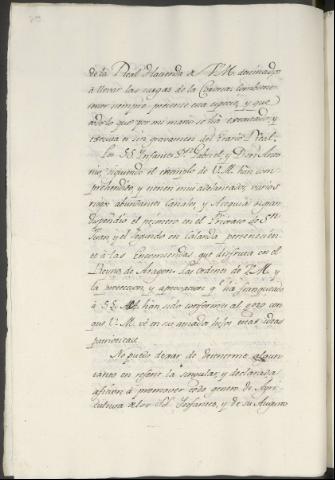 de la Real Hacienda a S.M. destinados
a llevar las cargas de la Corona: tambien
tener siempre presente esta especie, y que
todo lo que por mi mano se ha executado y
executa es sin gravamen del Erario Real.
Los SS. Infantes Dn. Gabriel, y Dn. Anto-
nio, siguiendo el exemplo de V.M. han com-
prehendido, y tienen mui adelantados, varios
riegos abundantes canales, y Acequia a gran
dispendio el primero en el Priorato de Sn.
Juan, y el segundo en Calanda pertenecien-
te á las Encomiendas que disfruta en el
Reyno de Aragon. Las ordenes de V.M. y
la proteccion, y aprovacion q. ha franqueado
á SS. AA. han sido conforme al gozo con
que V.M. vé en sus amados hijos estas ideas
patrioticas.
No puedo dexar de detenerme algun
tanto en referir la singular, y declarada
aficion á promover todo genero de Agri-
cultura a los SS. Infantes, y de su Augusto